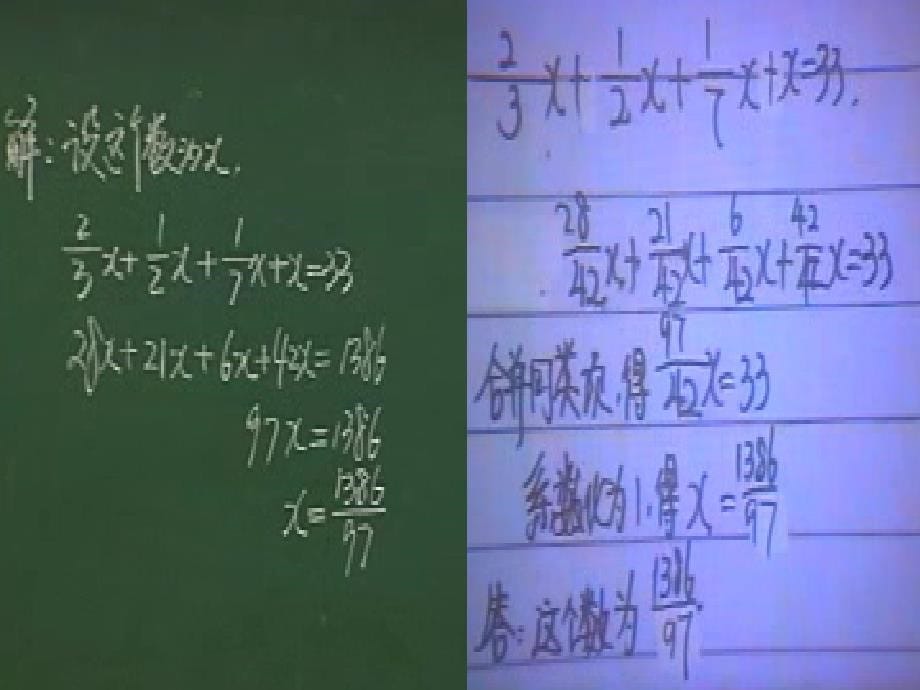 解：设这个数为x.
2/3x+1/2x+1/7x+x=33
28x+21x+6x+42x=1386
97x=1386
x=1386/97
2/3x+1/2x+1/7x+x=33.
28/42x+21/42x+6/42x+42/42x=33
合并同类项，得 97/42x=33
系数化为1，得 x=1386/97
答：这个数为 1386/97